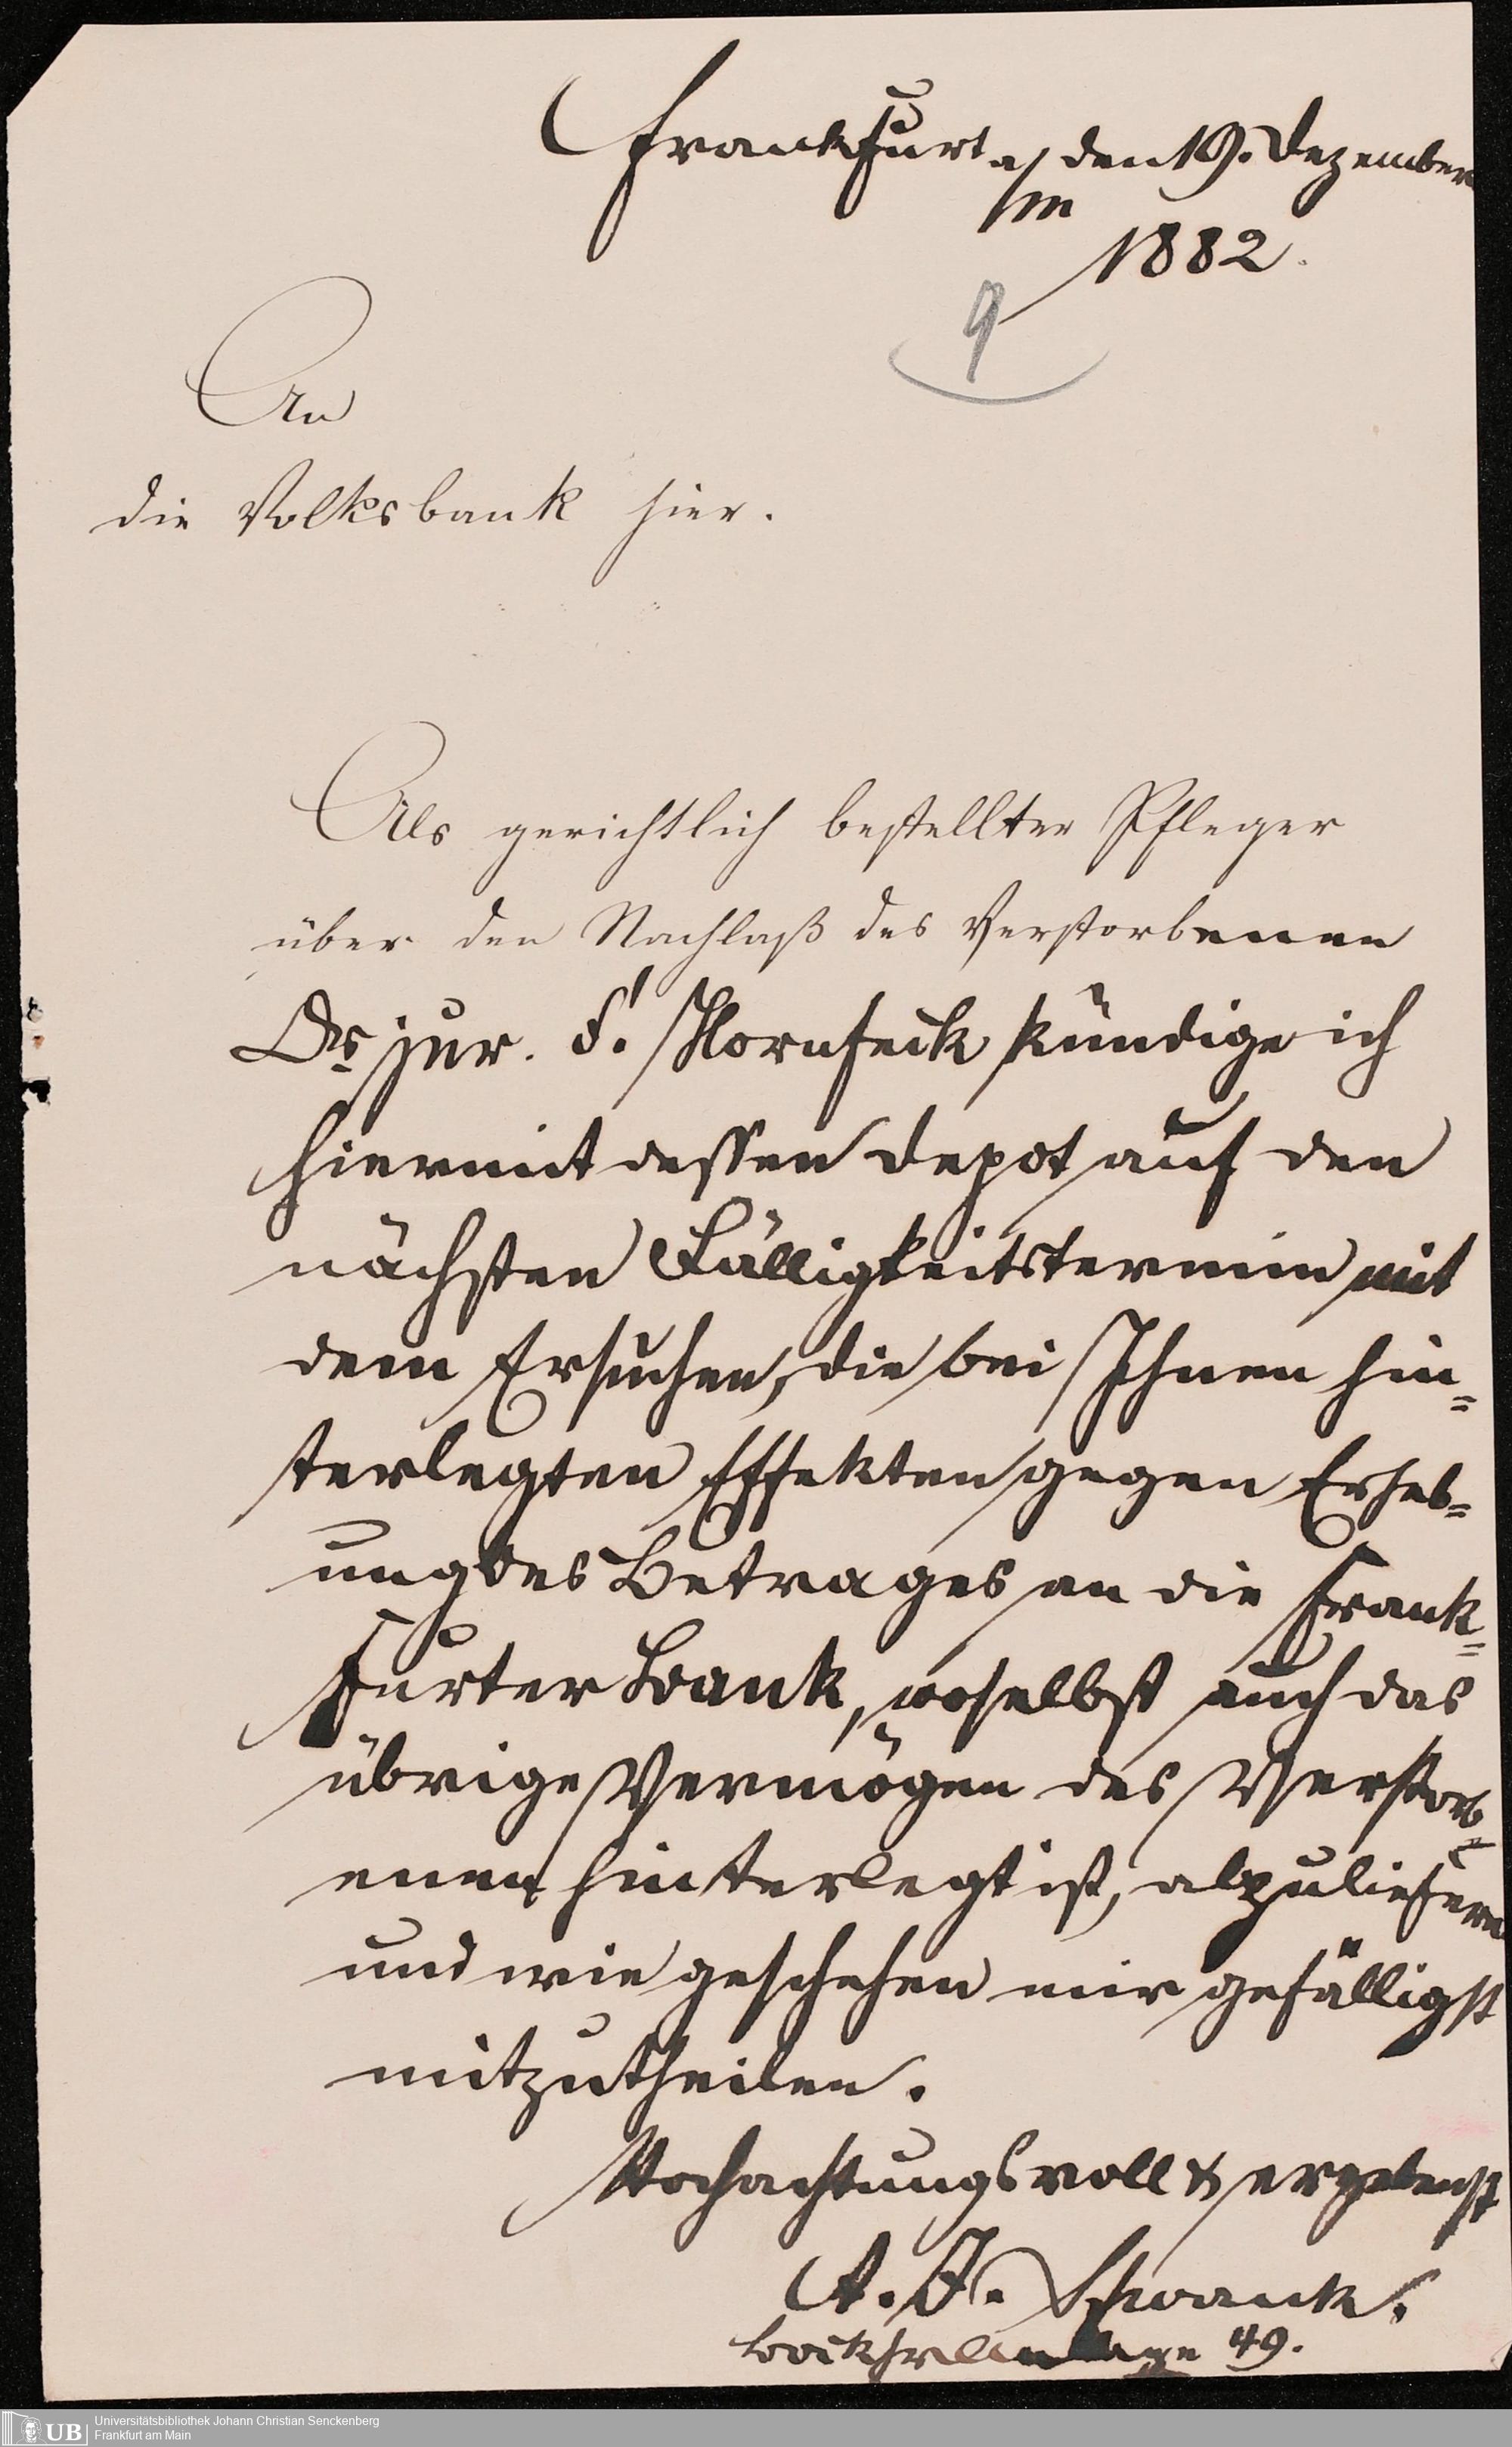 Frankfurt a/m den 19. Dezember
1882.
9
An
die Volksbank hier.
Als gerichtlich bestellter Pfleger
über den Nachlaß des Verstorbenen
Dr jur. F. Hornfeck kündige ich
hiermit dessen Depot auf den
nächsten Fälligkeitstermin mit
dem Ersuchen, die bei Ihnen hin=
terlegten Effekten gegen Erheb=
ung des Betrages an die Frank=
furter Bank, woselbst auch das
übrige Vermögen des Verstorb=
enen hinterlegt ist, abzuliefern
und wie geschehen mir gefälligst
mitzutheilen.
Hochachtungsvoll & ergebenst
A. J. Schwank.
49.
UB
Universitätsbibliothek Johann Christian Senckenberg
Frankfurt am Main